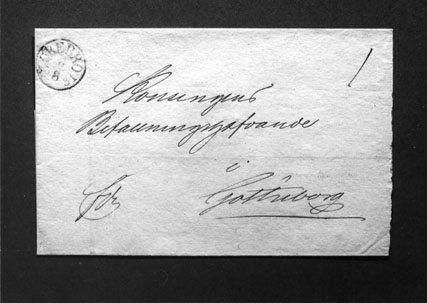 ÖREBRO
8
Konungens
Befallningshafvande
i
Götheborg